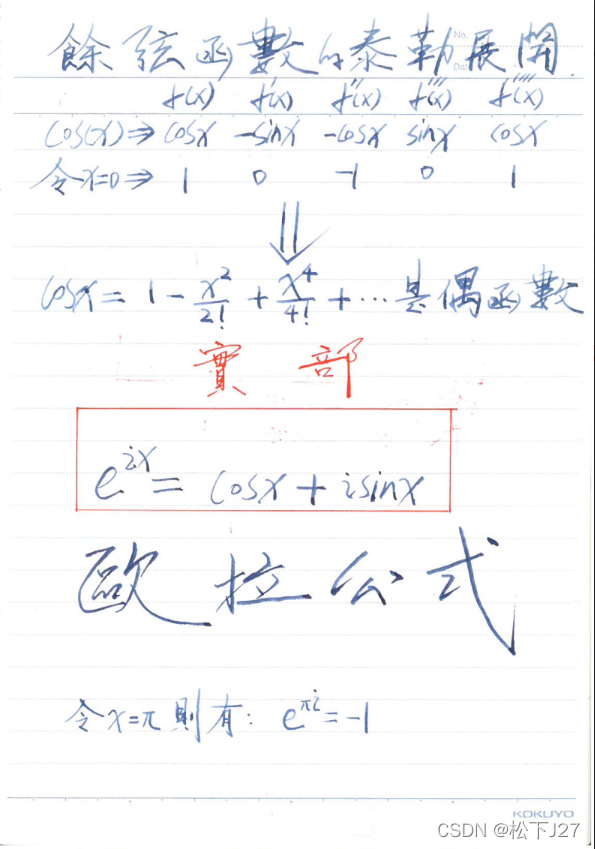 餘弦函數的泰勒展開
No.
Date
f(x) f'(x) f''(x) f'''(x) f''''(x)
cos(x) ⇒ cosx -sinx -cosx sinx cosx
令x=0 ⇒ 1 0 -1 0 1
⇓
cosx = 1 - x²/2! + x⁴/4! + … 是偶函數
實部
e^{ix} = cosx + isinx
歐拉公式
令x=π則有: e^{πi} = -1
KOKUYO
CSDN @松下J27